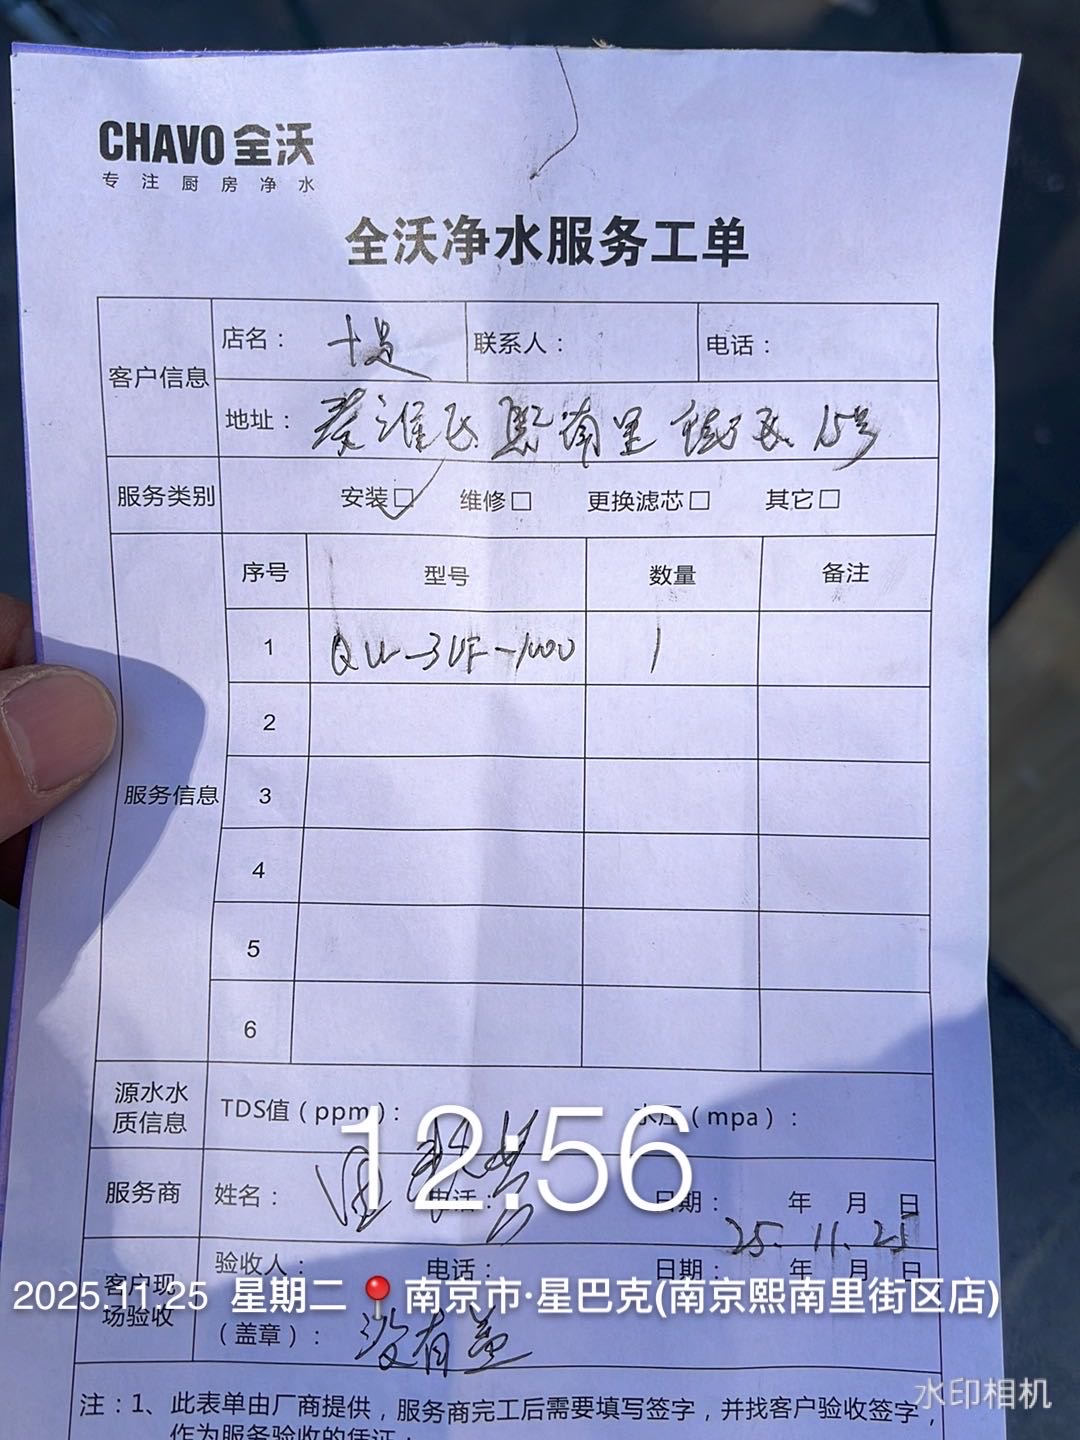 CHAVO 全沃
专注厨房净水
全沃净水服务工单
客户信息
店名：
联系人：
电话：
地址：秦淮区熙南里街区15号
服务类别
安装□ 维修□ 更换滤芯□ 其它□
服务信息
序号 型号 数量 备注
1 QW-3UF-1000 1
2
3
4
5
6
源水水质信息
TDS值（ppm）： 水压（mpa）：
12:56
服务商
姓名： 电话： 日期： 年 月 日
25.11.25
客户现场验收
验收人： 电话： 日期： 年 月 日
2025.11.25 星期二 南京市·星巴克(南京熙南里街区店)
（盖章）：没有盖
水印相机
注：1、此表单由厂商提供，服务商完工后需要填写签字，并找客户验收签字，
作为服务验收的凭证；